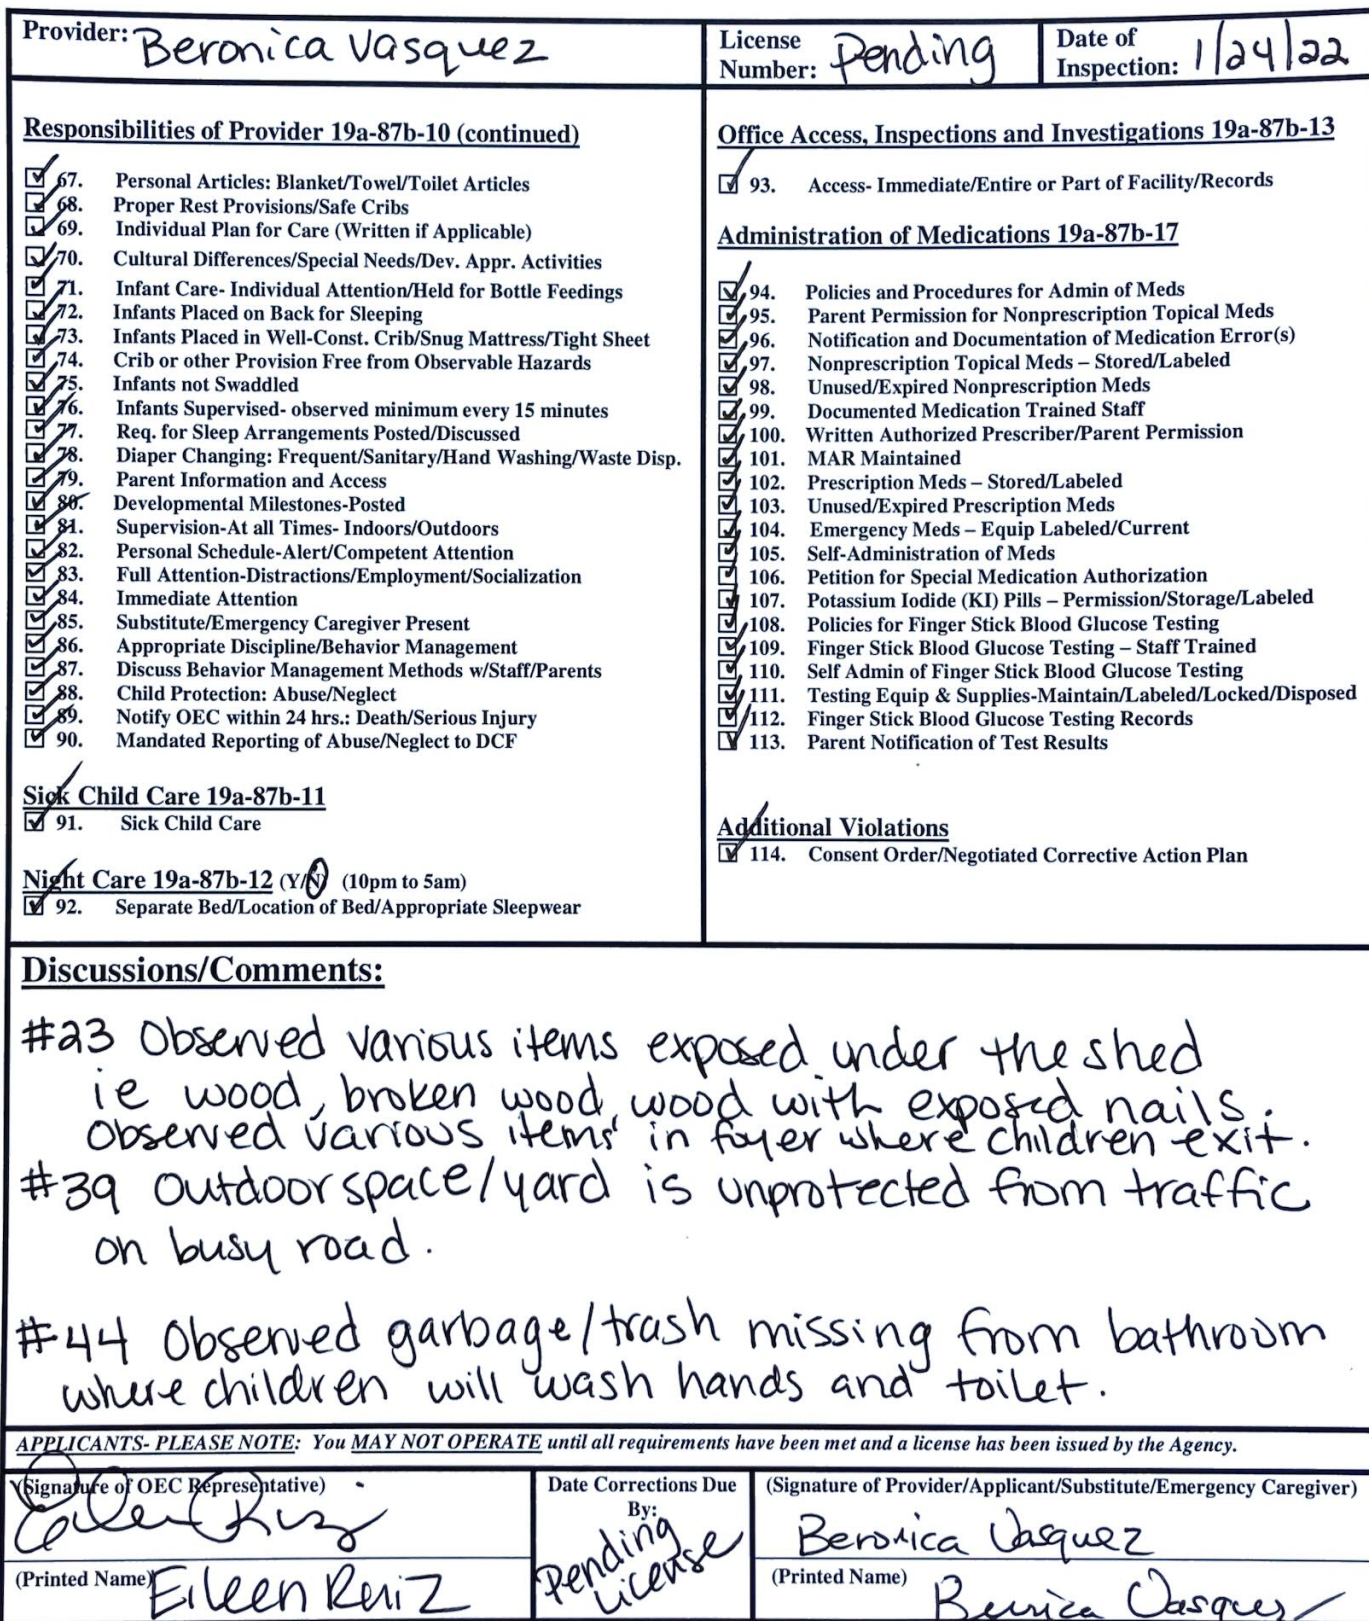 Provider: Beronica Vasquez
License Number: Pending
Date of Inspection: 1/24/22
Responsibilities of Provider 19a-87b-10 (continued)
67. Personal Articles: Blanket/Towel/Toilet Articles
68. Proper Rest Provisions/Safe Cribs
69. Individual Plan for Care (Written if Applicable)
70. Cultural Differences/Special Needs/Dev. Appr. Activities
71. Infant Care- Individual Attention/Held for Bottle Feedings
72. Infants Placed on Back for Sleeping
73. Infants Placed in Well-Const. Crib/Snug Mattress/Tight Sheet
74. Crib or other Provision Free from Observable Hazards
75. Infants not Swaddled
76. Infants Supervised- observed minimum every 15 minutes
77. Req. for Sleep Arrangements Posted/Discussed
78. Diaper Changing: Frequent/Sanitary/Hand Washing/Waste Disp.
79. Parent Information and Access
80. Developmental Milestones-Posted
81. Supervision-At all Times- Indoors/Outdoors
82. Personal Schedule-Alert/Competent Attention
83. Full Attention-Distractions/Employment/Socialization
84. Immediate Attention
85. Substitute/Emergency Caregiver Present
86. Appropriate Discipline/Behavior Management
87. Discuss Behavior Management Methods w/Staff/Parents
88. Child Protection: Abuse/Neglect
89. Notify OEC within 24 hrs.: Death/Serious Injury
90. Mandated Reporting of Abuse/Neglect to DCF
Sick Child Care 19a-87b-11
91. Sick Child Care
Night Care 19a-87b-12 (Y/N) (10pm to 5am)
92. Separate Bed/Location of Bed/Appropriate Sleepwear
Office Access, Inspections and Investigations 19a-87b-13
93. Access- Immediate/Entire or Part of Facility/Records
Administration of Medications 19a-87b-17
94. Policies and Procedures for Admin of Meds
95. Parent Permission for Nonprescription Topical Meds
96. Notification and Documentation of Medication Error(s)
97. Nonprescription Topical Meds – Stored/Labeled
98. Unused/Expired Nonprescription Meds
99. Documented Medication Trained Staff
100. Written Authorized Prescriber/Parent Permission
101. MAR Maintained
102. Prescription Meds – Stored/Labeled
103. Unused/Expired Prescription Meds
104. Emergency Meds – Equip Labeled/Current
105. Self-Administration of Meds
106. Petition for Special Medication Authorization
107. Potassium Iodide (KI) Pills – Permission/Storage/Labeled
108. Policies for Finger Stick Blood Glucose Testing
109. Finger Stick Blood Glucose Testing – Staff Trained
110. Self Admin of Finger Stick Blood Glucose Testing
111. Testing Equip & Supplies-Maintain/Labeled/Locked/Disposed
112. Finger Stick Blood Glucose Testing Records
113. Parent Notification of Test Results
Additional Violations
114. Consent Order/Negotiated Corrective Action Plan
Discussions/Comments:
#23 Observed various items exposed under the shed
ie wood, broken wood, wood with exposed nails.
Observed various items in foyer where children exit.
#39 Outdoor space/yard is unprotected from traffic
on busy road.
#44 Observed garbage/trash missing from bathroom
where children will wash hands and toilet.
APPLICANTS- PLEASE NOTE: You MAY NOT OPERATE until all requirements have been met and a license has been issued by the Agency.
(Signature of OEC Representative)
Eileen Ruiz
(Printed Name) Eileen Ruiz
Date Corrections Due
By:
Pending
License
(Signature of Provider/Applicant/Substitute/Emergency Caregiver)
Beronica Vasquez
(Printed Name) Beronica Vasquez